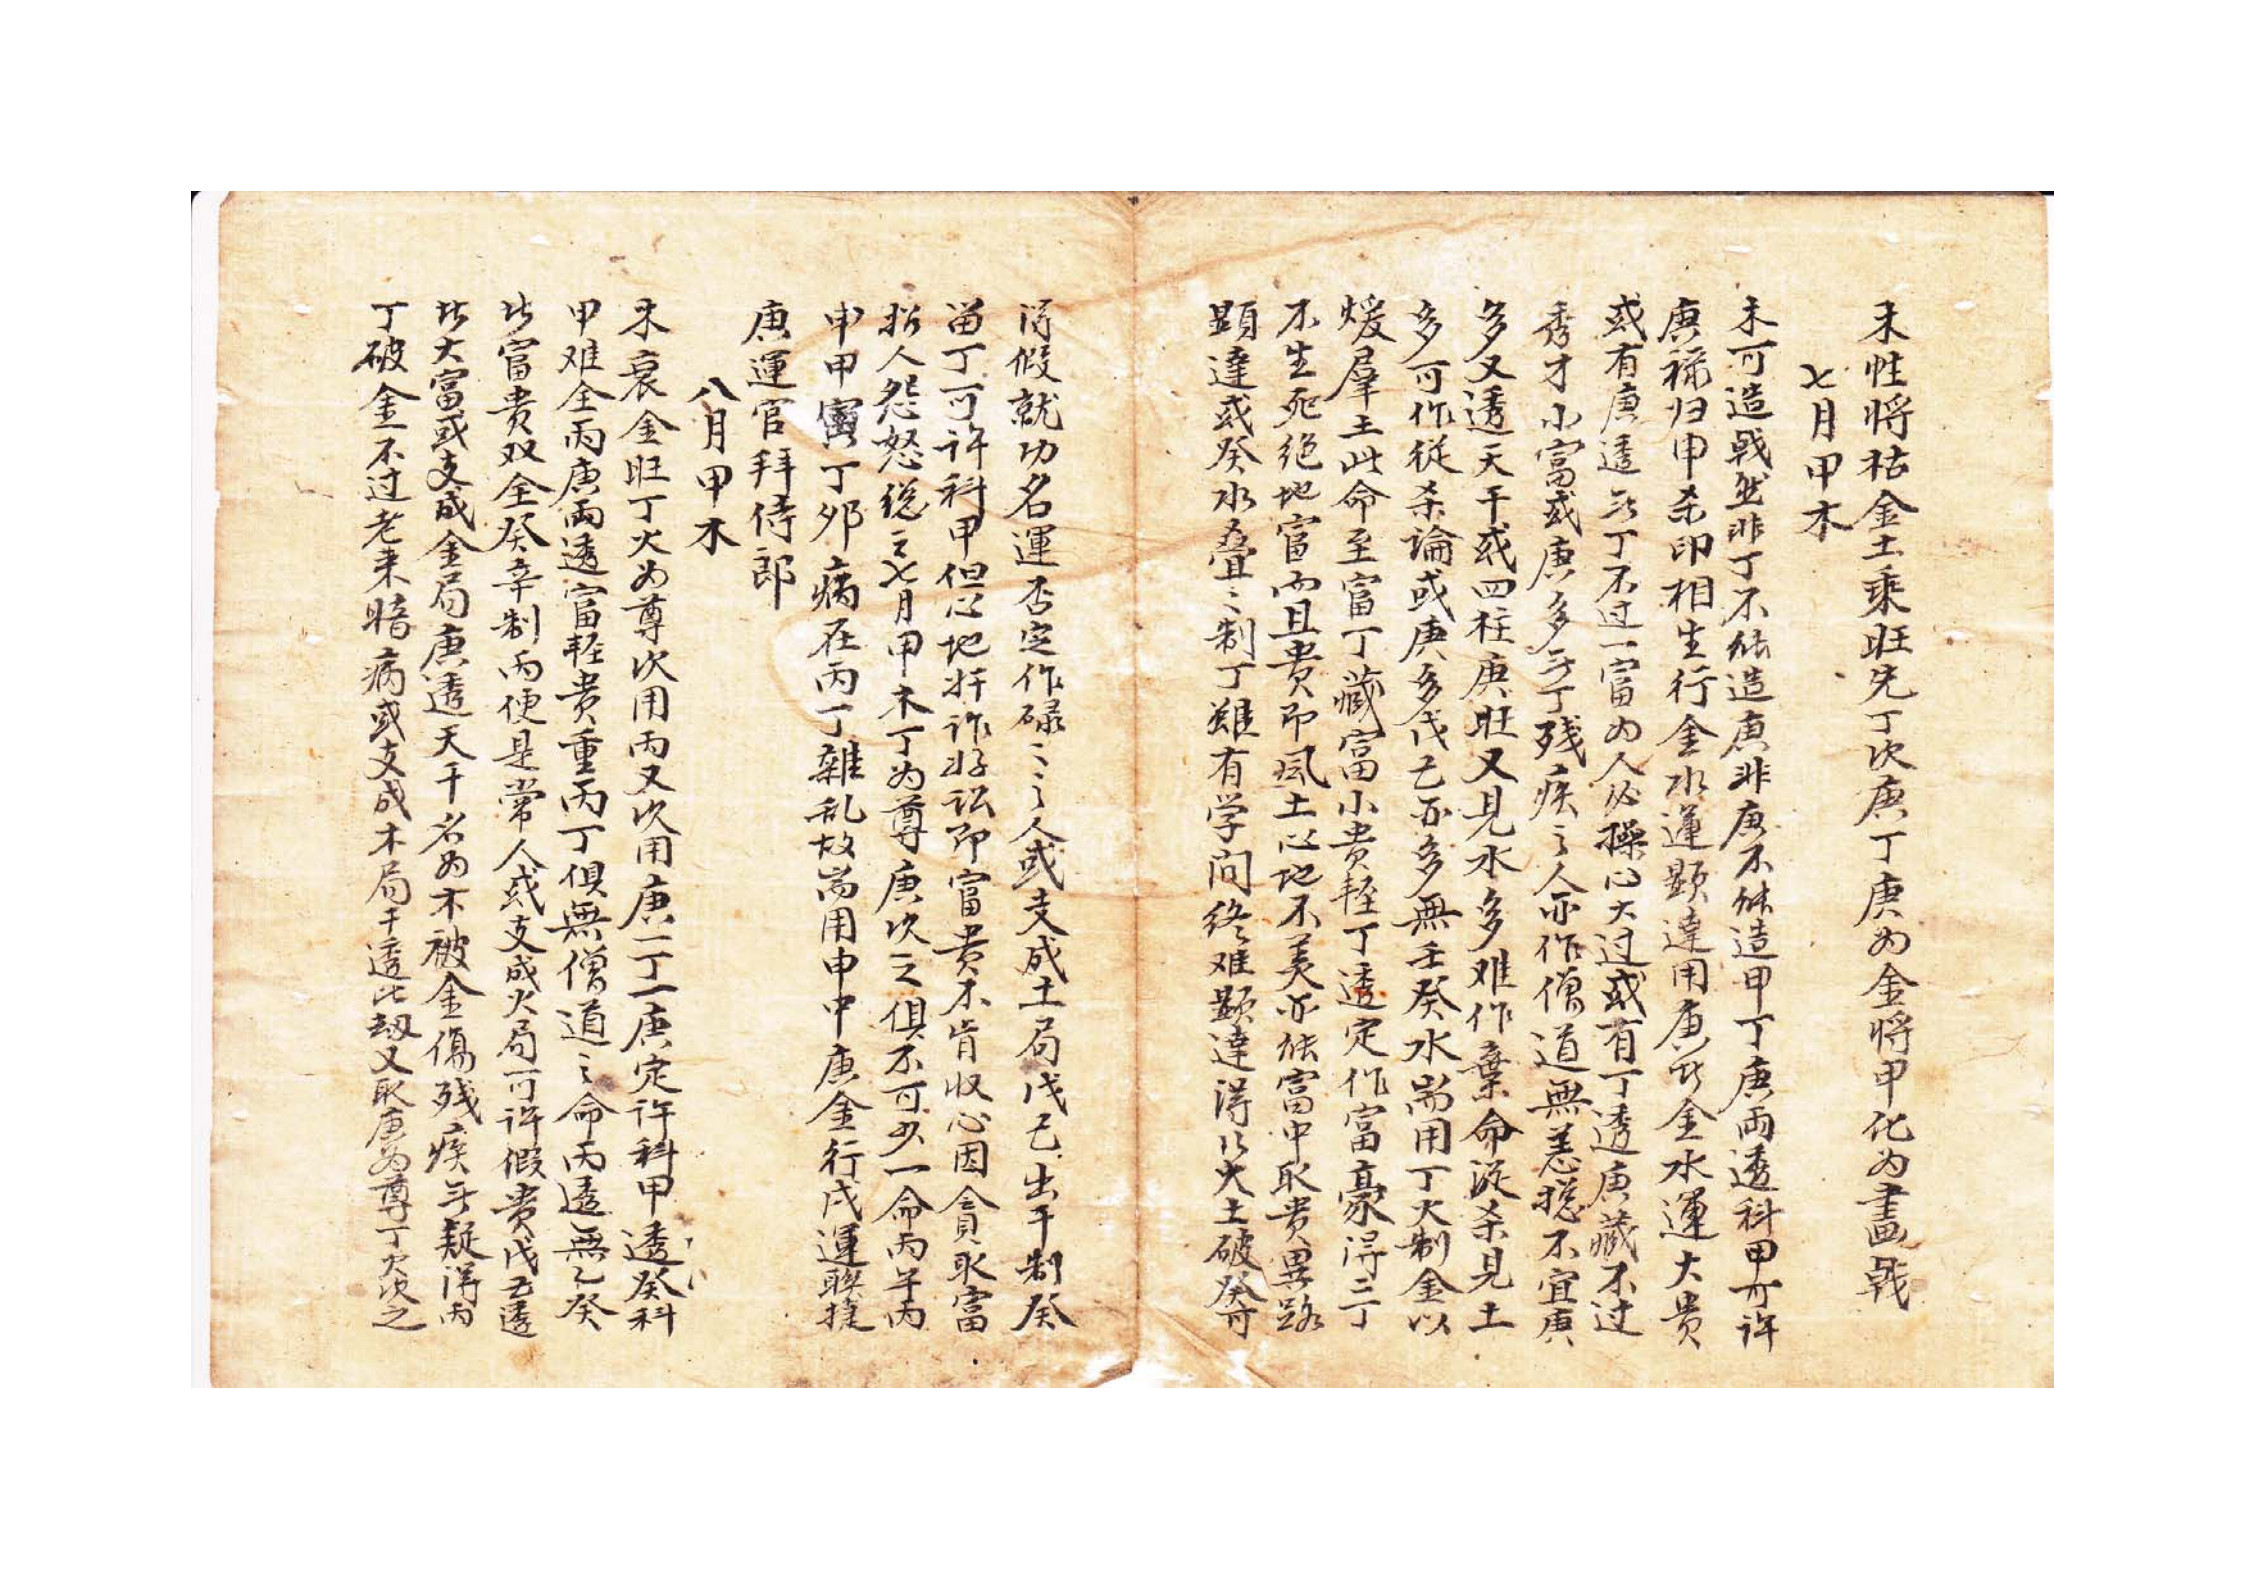 木性将枯金土乘旺先丁次庚丁庚为金将甲化为畫戟
七月甲木
木可造戟然非丁不能造庚非庚不能造甲丁庚両透科甲可许
庚禄归申杀印相生行金水運顕達用庚此金水運大贵
或有庚透此丁不过一富为人必操心大过或有丁透庚藏不过
秀才小富或庚多无丁残疾之人亦作僧道無恙揔不宜庚
多又透天干或四柱庚旺又見水多难作棄命從杀見土
多可作從杀論或庚多戊己亦多無壬癸水耑用丁火制金以
煖羣土此命至富丁藏富小贵輕丁透定作富豪得二丁
不生死绝地富而且贵即風土心地不美亦能富中取贵異路
顕達或癸水叠〻制丁雖有学问终难顕達得以火土破癸可
得假就功名運否定作碌〻之人或支成土局戊己出干制癸
畄丁可许科甲但心地奸诈好訟即富贵不肯收心因貪取富
招人怨怒總之七月甲木丁为尊庚次之俱不可少一命丙午丙
申甲寅丁夘病在丙丁雜乱故耑用申中庚金行戌運聮捷
庚運官拜侍郎
八月甲木
木衰金旺丁火为尊次用丙又次用庚一丁一庚定许科甲透癸科
甲难全丙庚両透富輕贵重丙丁俱無僧道之命丙透無乙癸
此富贵双全癸辛制丙便是常人或支成火局可许假贵戊己透
此大富或支成金局庚透天干名为木被金傷残疾无疑得丙
丁破金不过老来暗病或支成木局干透比刼又取庚为尊丁火次之